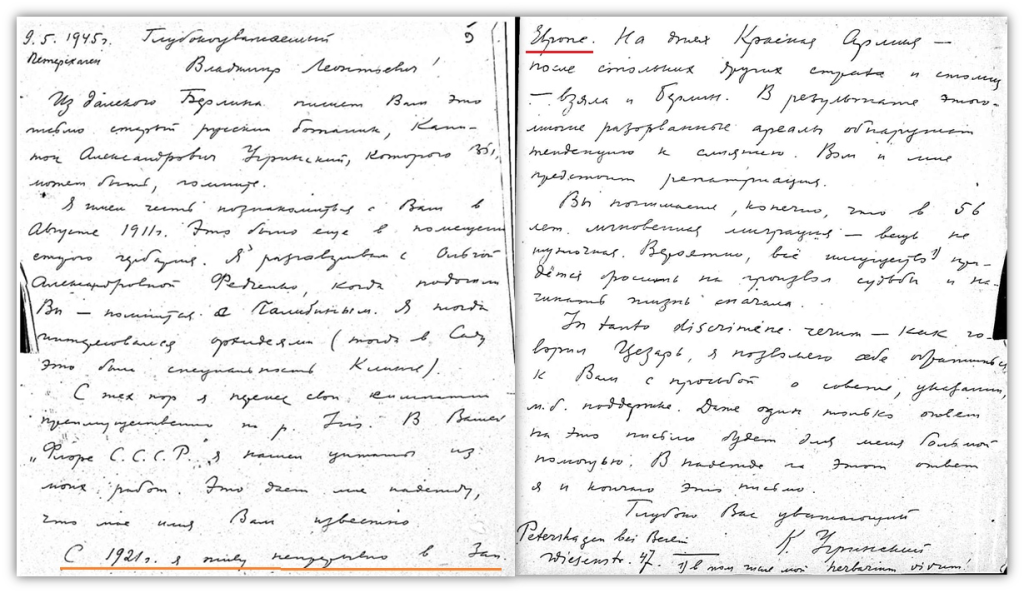 9.5.1945г. Глубокоуважаемый 5
Петерсхаген
Владимир Леонтьевич!
Из далекого Берлина пишет Вам это
письмо старый русский ботаник, Капи-
тон Александрович Угринский, которого Вы,
может быть, помните.
Я имел честь познакомиться с Вами в
Августе 1911г. Это было еще в помещении
старого гербария. Я разговаривал с Ольгой
Александровной Федченко, когда подошли
Вы – помнится с Палибиным. Я тогда
интересовался орхидеями (тогда в Саду
это была специальность Клинге).
С тех пор я перенес свои симпатии
преимущественно на р. Iris. В Вашей
„Флоре С.С.С.Р." я нашел цитаты из
моих работ. Это дает мне надежду,
что мое имя Вам известно
С 1921г. я живу непрерывно в Зап.
Европе. На днях Красная Армия –
после стольких других стран и столиц
– взяла и Берлин. В результате этого
многие разорванные ареалы обнаружат
тенденцию к слиянию. Вот и мне
предстоит репатриация.
Вы понимаете, конечно, что в 56
лет мгновенная миграция – вещь не
шуточная. Вероятно, всё имущество¹⁾ при-
дётся бросить на произвол судьбы и на-
чинать жизнь сначала.
In tanto discrimine rerum – как го-
ворил Цезарь, я позволяю себе обратиться
к Вам с просьбой о совете, указании,
м.б. поддержке. Даже один только ответ
на это письмо будет для меня большой
помощью. В надежде на этот ответ
я и кончаю это письмо.
Глубоко Вас уважающий
Petershagen bei Berlin К. Угринский
Wiesenstr. 47. 1) в том числе мой herbarium vivum!